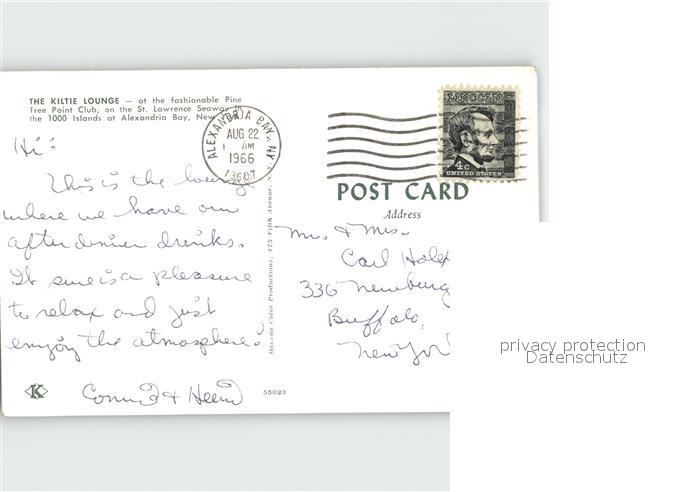 THE KILTIE LOUNGE — at the fashionable Pine
Tree Point Club, on the St. Lawrence Seaway
the 1000 Islands at Alexandria Bay, New
ALEXANDRIA BAY, N.Y.
AUG 22
AM
1966
13607
4c
UNITED STATES
Hi:
This is the lounge
where we have our
after dinner drinks.
It sure is a pleasure
to relax and just
enjoy the atmosphere!
K
55023
475 Fifth Avenue, N.Y.
Color Productions,
POST CARD
Address
Mr. & Mrs.
Carl
336 Newburg
Buffalo,
New York
privacy protection
Datenschutz